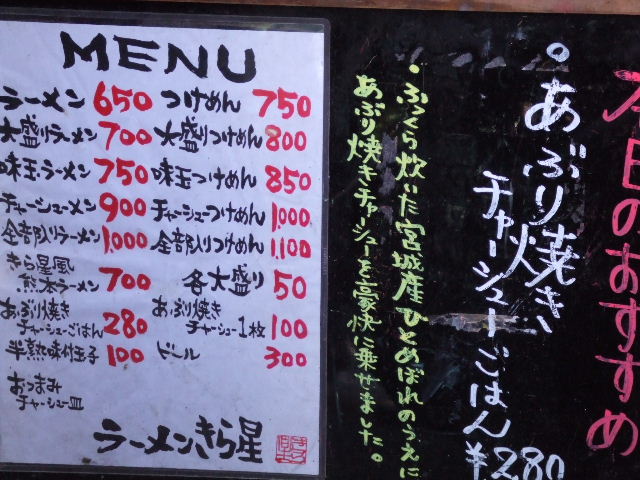 MENU
ラーメン 650 つけめん 750
大盛りラーメン 700 大盛りつけめん 800
味玉ラーメン 750 味玉つけめん 850
チャーシューメン 900 チャーシューつけめん 1,000
全部入りラーメン 1,000 全部入りつけめん 1,100
きら星風
熊本ラーメン 700 各大盛り 50
あぶり焼き
チャーシューごはん 280
あぶり焼き
チャーシュー1枚 100
半熟味付玉子 100 ビール 300
おつまみ
チャーシュー皿
ラーメンきら星
本日のおすすめ
。あぶり焼き
チャーシューごはん
¥280
・ふっくら炊いた宮城産ひとめぼれのうえに
あぶり焼きチャーシューを豪快に乗せました。